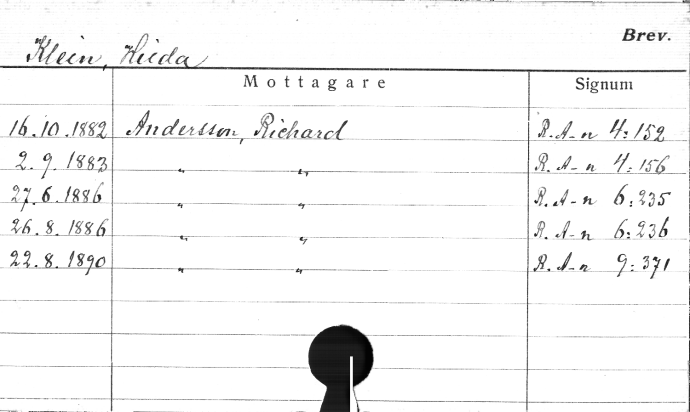 Brev.
Klein, Hilda
Mottagare Signum
16.10.1882 Andersson, Richard R. A-n 4:152
2.9.1883 " " R. A-n 4:156
27.6.1886 " " R. A-n 6:235
26.8.1886 " " R. A-n 6:236
22.8.1890 " " R. A-n 9:371